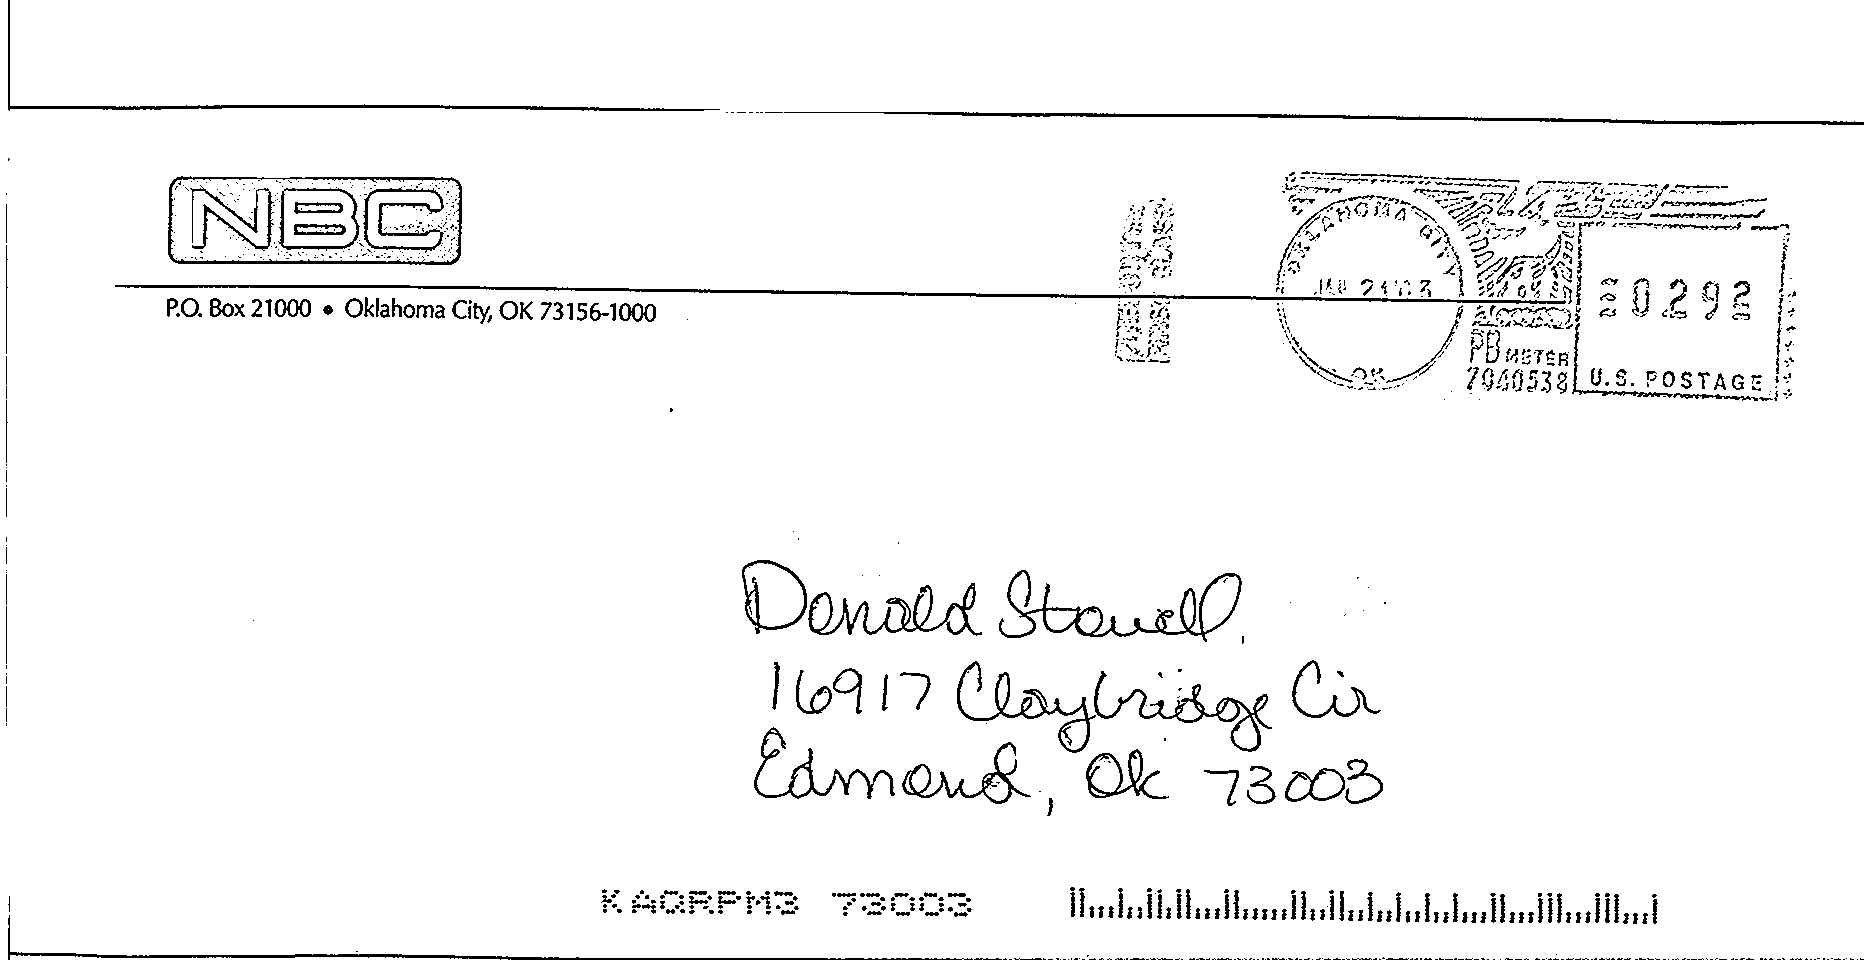 NBC
P.O. Box 21000 • Oklahoma City, OK 73156-1000
OKLAHOMA CITY
OK
PB METER
7040538
0292
U.S. POSTAGE
Donald Stowell
16917 Claybridge Cir
Edmond, Ok 73003
KAQRPM3 73003